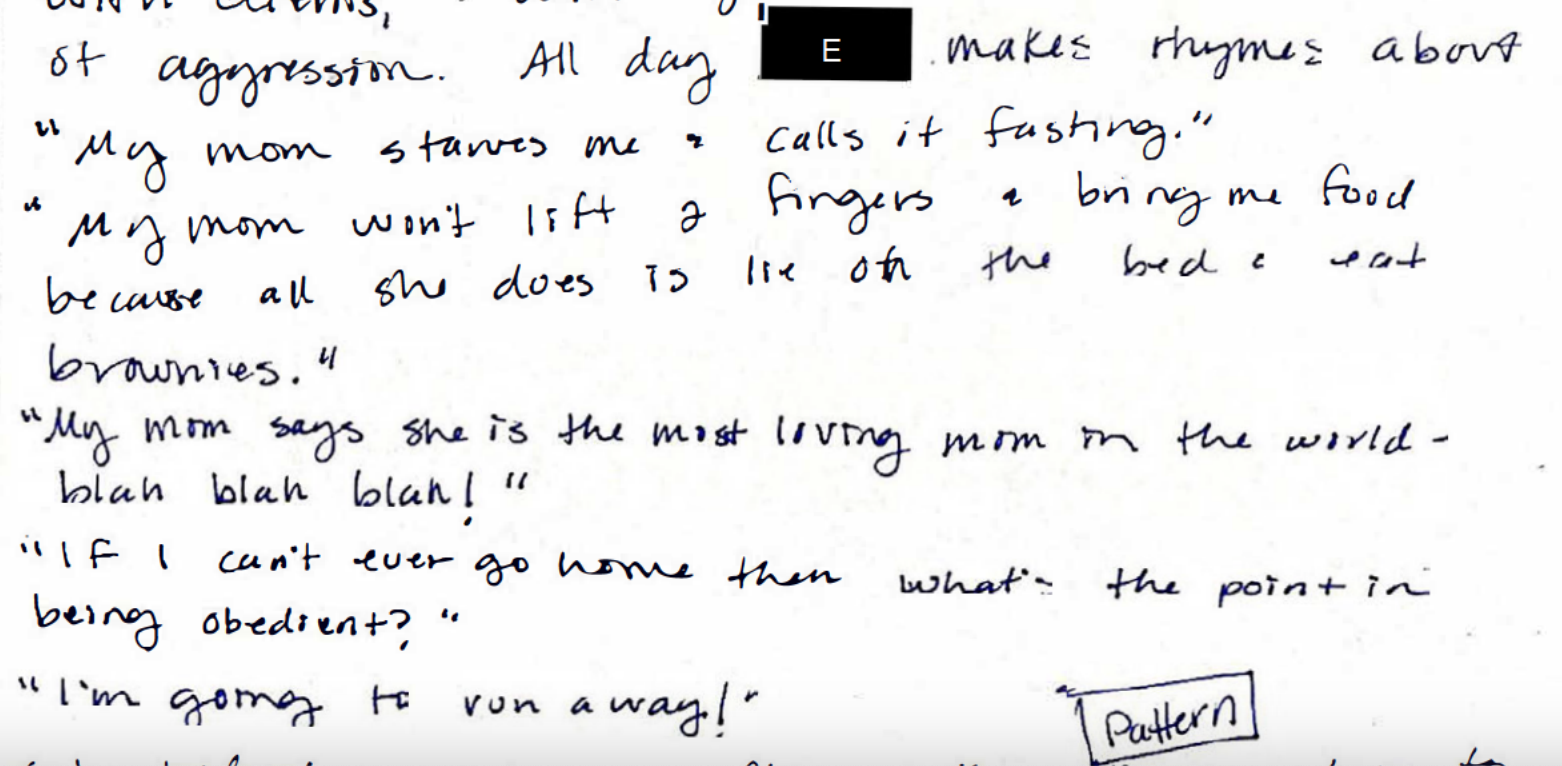 of aggression. All day E makes rhymes about
"My mom starves me & calls it fasting."
"My mom won't lift 2 fingers & bring me food
because all she does is lie on the bed & eat
brownies."
"My mom says she is the most loving mom in the world -
blah blah blah!"
"If I can't ever go home then what's the point in
being obedient?"
"I'm going to run away!"
Pattern